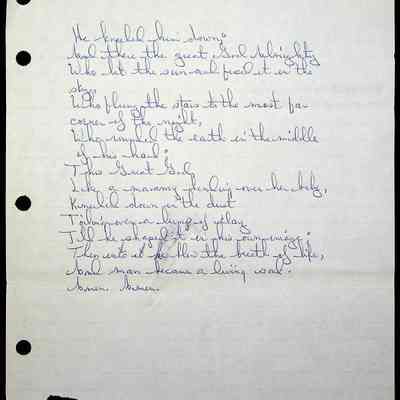 He kneeled him down;
And there the great God Almighty
Who lit the sun and fixed it in the
sky,
Who flung the stars to the most far
corner of the night,
Who rounded the earth in the middle
of his hand;
This Great God,
Like a mammy bending over her baby,
Kneeled down in the dust
Toiling over a lump of clay
Till he shaped it in his own image;
Then into it he blew the breath of life,
And man became a living soul.
Amen. Amen.